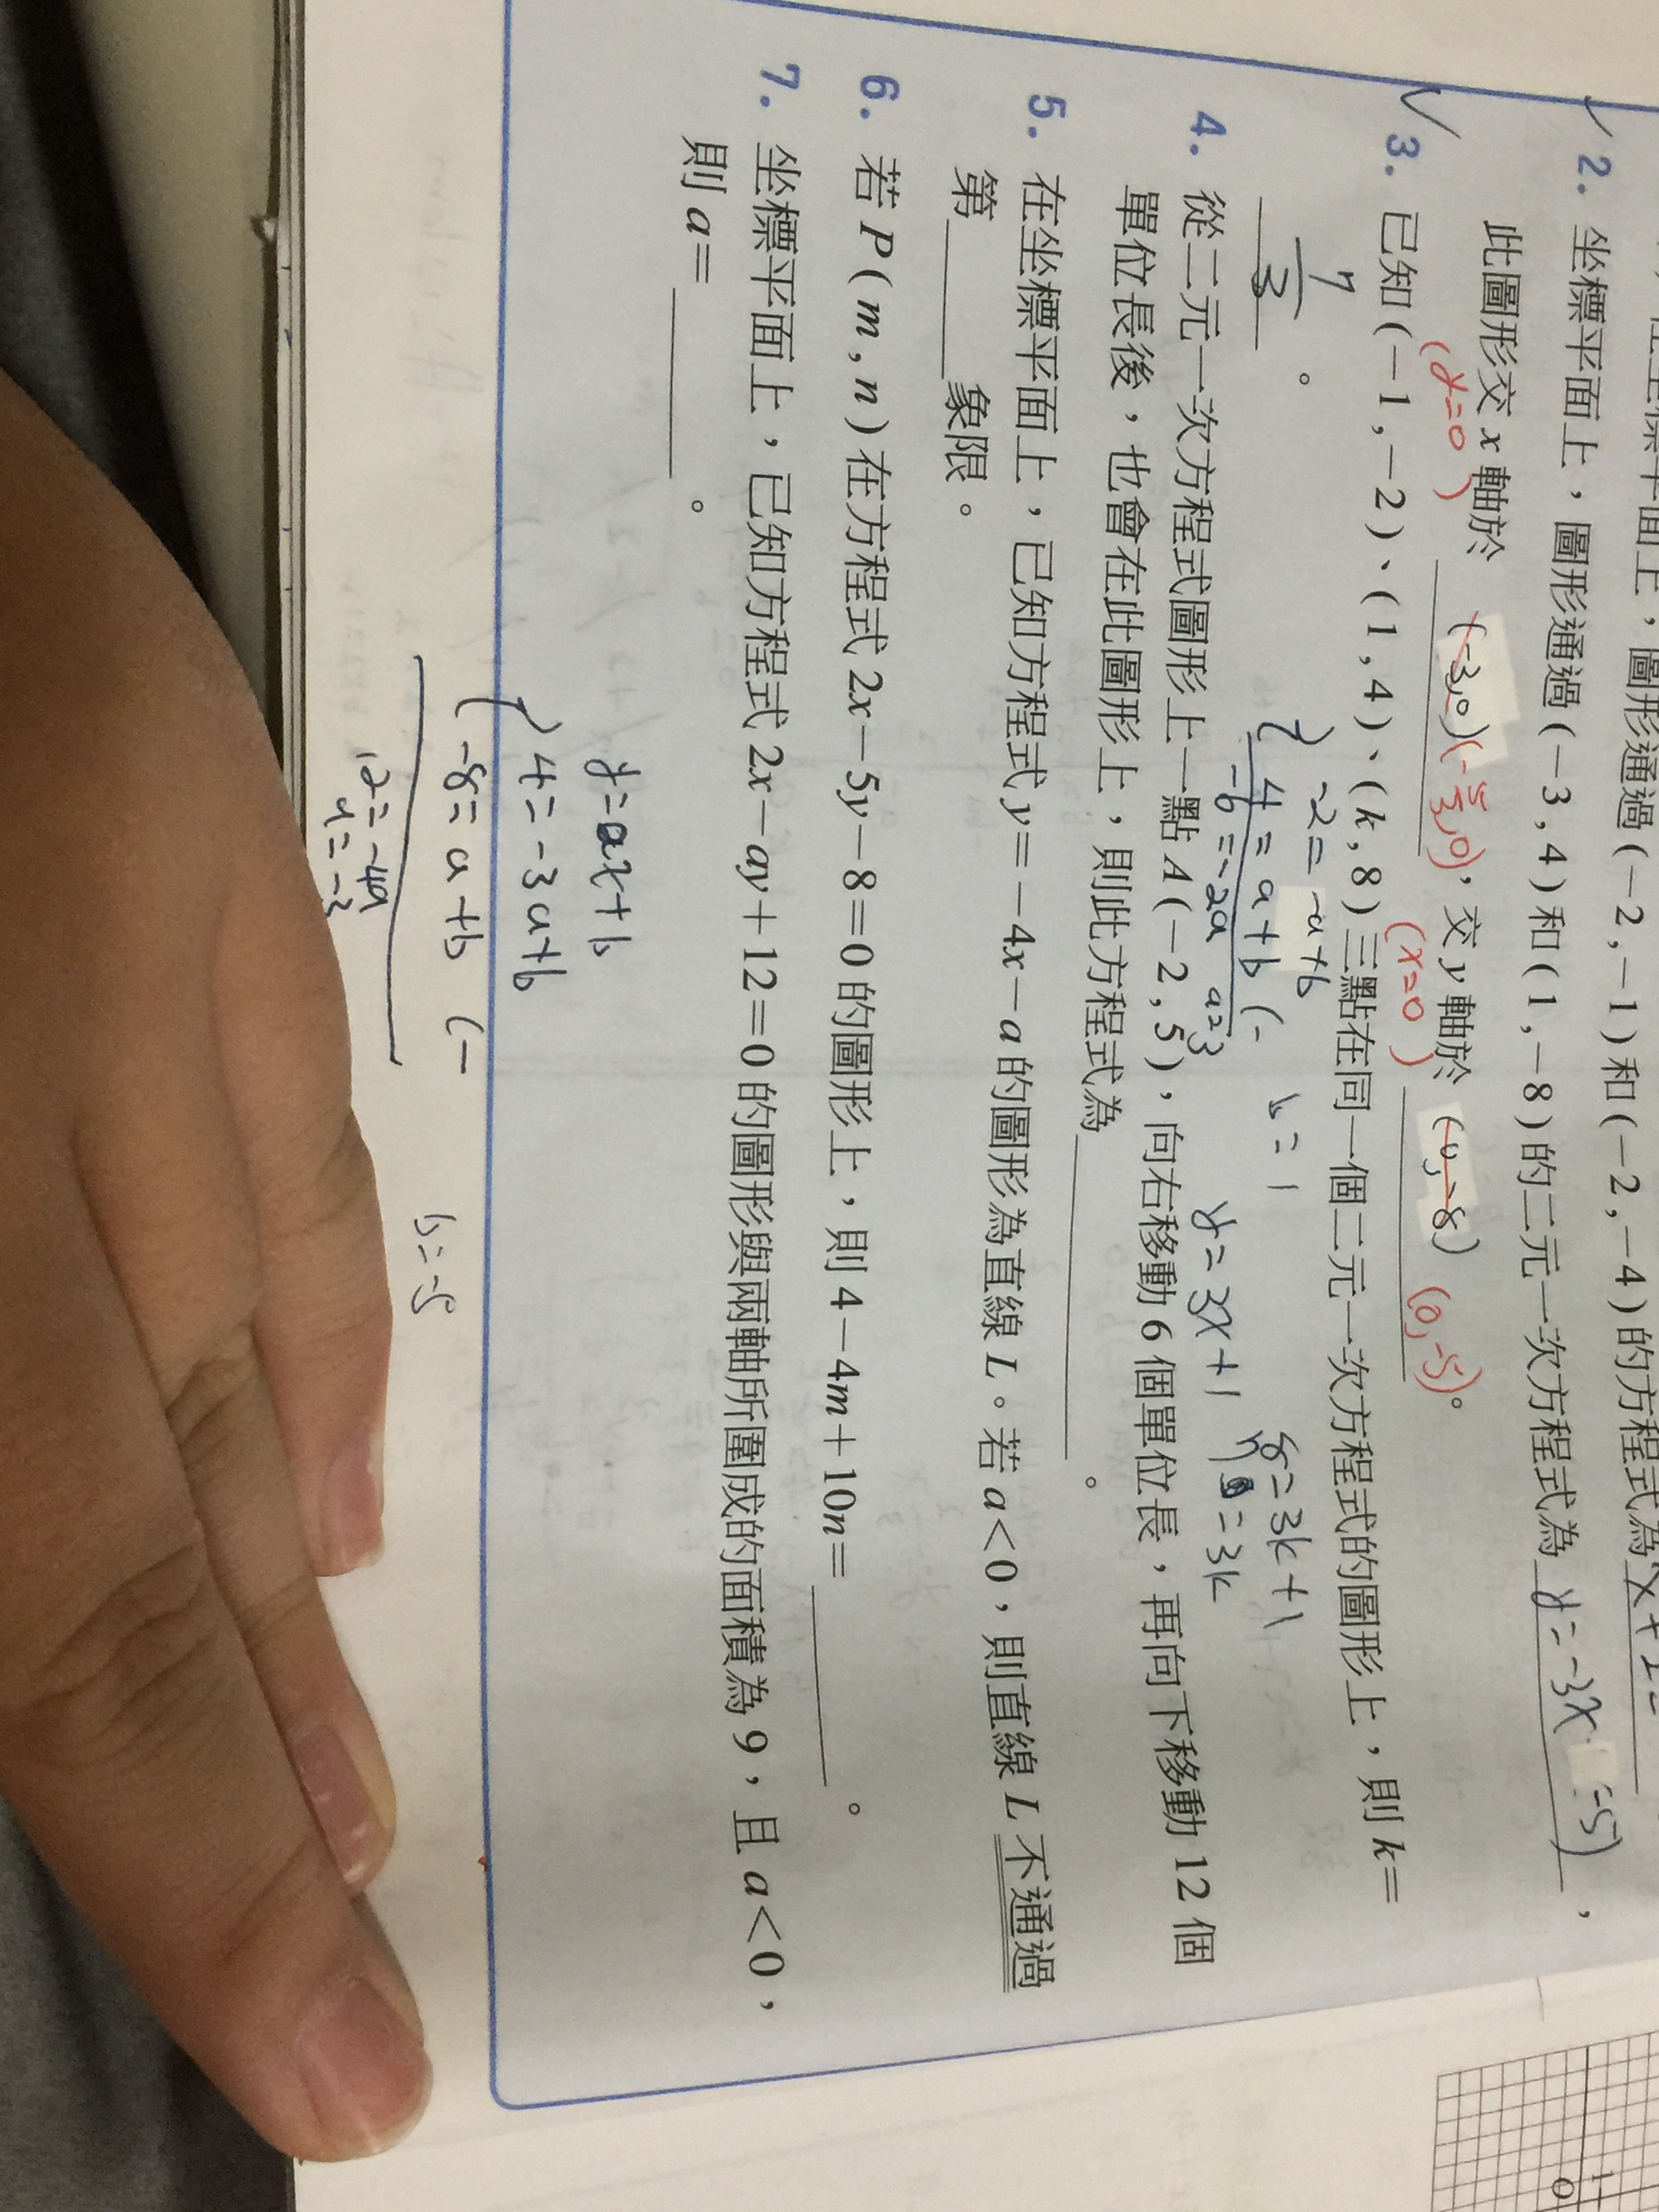 坐標平面上,圖形通過(-2,-1)和(-2,-4)的方程式為x+2=
✓ 2. 坐標平面上,圖形通過(-3,4)和(1,-8)的二元一次方程式為 y=-3x-5,
此圖形交 x 軸於 (-3,0)(-5/3,0),交 y 軸於 (0,-8) (0,-5)。
(y=0) (x=0)
✓ 3. 已知(-1,-2)、(1,4)、(k,8)三點在同一個二元一次方程式的圖形上,則 k=
7/3 。
-2=-a+b
4=a+b (-
-6=-2a a=3
b=1
y=3x+1
8=3k+1
7=3k
4. 從二元一次方程式圖形上一點 A(-2,5),向右移動 6 個單位長,再向下移動 12 個
單位長後,也會在此圖形上,則此方程式為 。
5. 在坐標平面上,已知方程式 y=-4x-a 的圖形為直線 L。若 a<0,則直線 L 不通過
第 象限。
6. 若 P(m,n)在方程式 2x-5y-8=0 的圖形上,則 4-4m+10n= 。
7. 坐標平面上,已知方程式 2x-ay+12=0 的圖形與兩軸所圍成的面積為 9,且 a<0,
則 a= 。
y=ax+b
4=-3a+b
-8=a+b (-
12=-4a
a=-3
b=-5
1
O